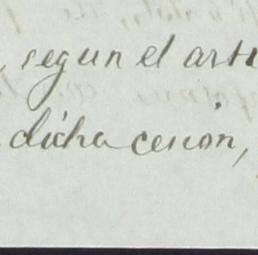 , segun el arti
dicha cesión,